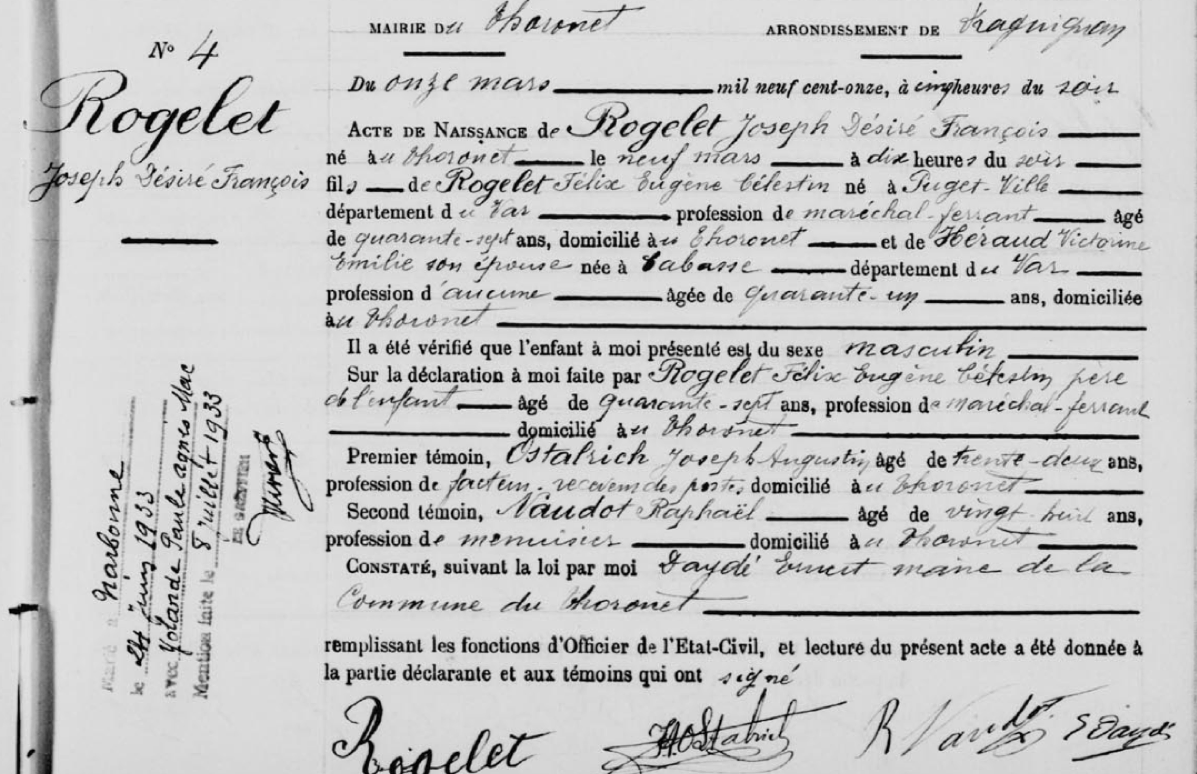 MAIRIE Du Thoronet ARRONDISSEMENT DE Draguignan
N° 4
Rogelet
Joseph Désiré François
Du onze mars mil neuf cent-onze, à cinq heures du soir
ACTE DE NAISSANCE de Rogelet Joseph Désiré François
né au Thoronet le neuf mars à dix heures du soir
fils de Rogelet Félix Eugène Célestin né à Puget-Ville
département du Var profession de maréchal-ferrant âgé
de quarante-sept ans, domicilié au Thoronet et de Héraud Victorine
Emilie son épouse née à Cabasse département du Var
profession d'aucune âgée de quarante-un ans, domiciliée
au Thoronet
Il a été vérifié que l'enfant à moi présenté est du sexe masculin
Sur la déclaration à moi faite par Rogelet Félix Eugène Célestin père
de l'enfant âgé de quarante-sept ans, profession de maréchal-ferrant
domicilié au Thoronet
Premier témoin, Ostalrich Joseph Augustin âgé de trente-deux ans,
profession de facteur-receveur des postes domicilié au Thoronet
Second témoin, Naudot Raphaël âgé de vingt huit ans,
profession de menuisier domicilié au Thoronet
CONSTATÉ, suivant la loi par moi Daydé Ernest maire de la
Commune du Thoronet
remplissant les fonctions d'Officier de l'Etat-Civil, et lecture du présent acte a été donnée à
la partie déclarante et aux témoins qui ont signé
Rogelet JAOstalrich R Naudot E Daydé
Marié à Narbonne
le 24 juin 1933
avec Yolande Paule agnès Mac
Mention faite le 8 juillet 1933
LE GREFFIER